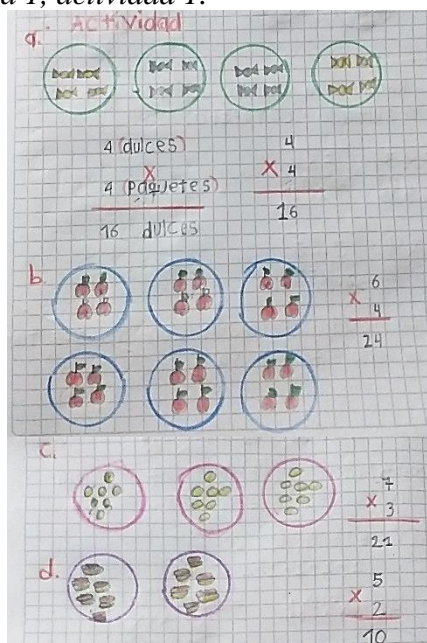 a 1, actividad 1.
a. Actividad
4 (dulces)
X
4 (Paquetes)
16 dulces
4
X 4
16
b.
6
X 4
24
c.
7
X 3
21
d.
5
X 2
10